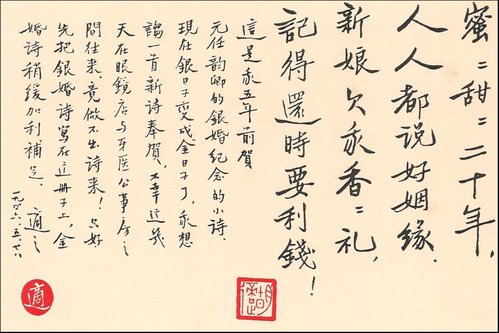 蜜〻甜〻二十年，
人人都说好姻缘.
新娘欠我香〻礼，
記得還時要利錢！
這是我五年前賀
元任韵卿的銀婚紀念的小诗.
現在銀日子变成金日子了，我想
謅一首新诗奉賀，不幸这幾
天在眼鏡店与牙医公事房之
間往来，竟做不出诗来！只好
先把銀婚诗寫在这册子上，金
婚诗稍缓加利補足. 適之
一九四六.五.廿八
適